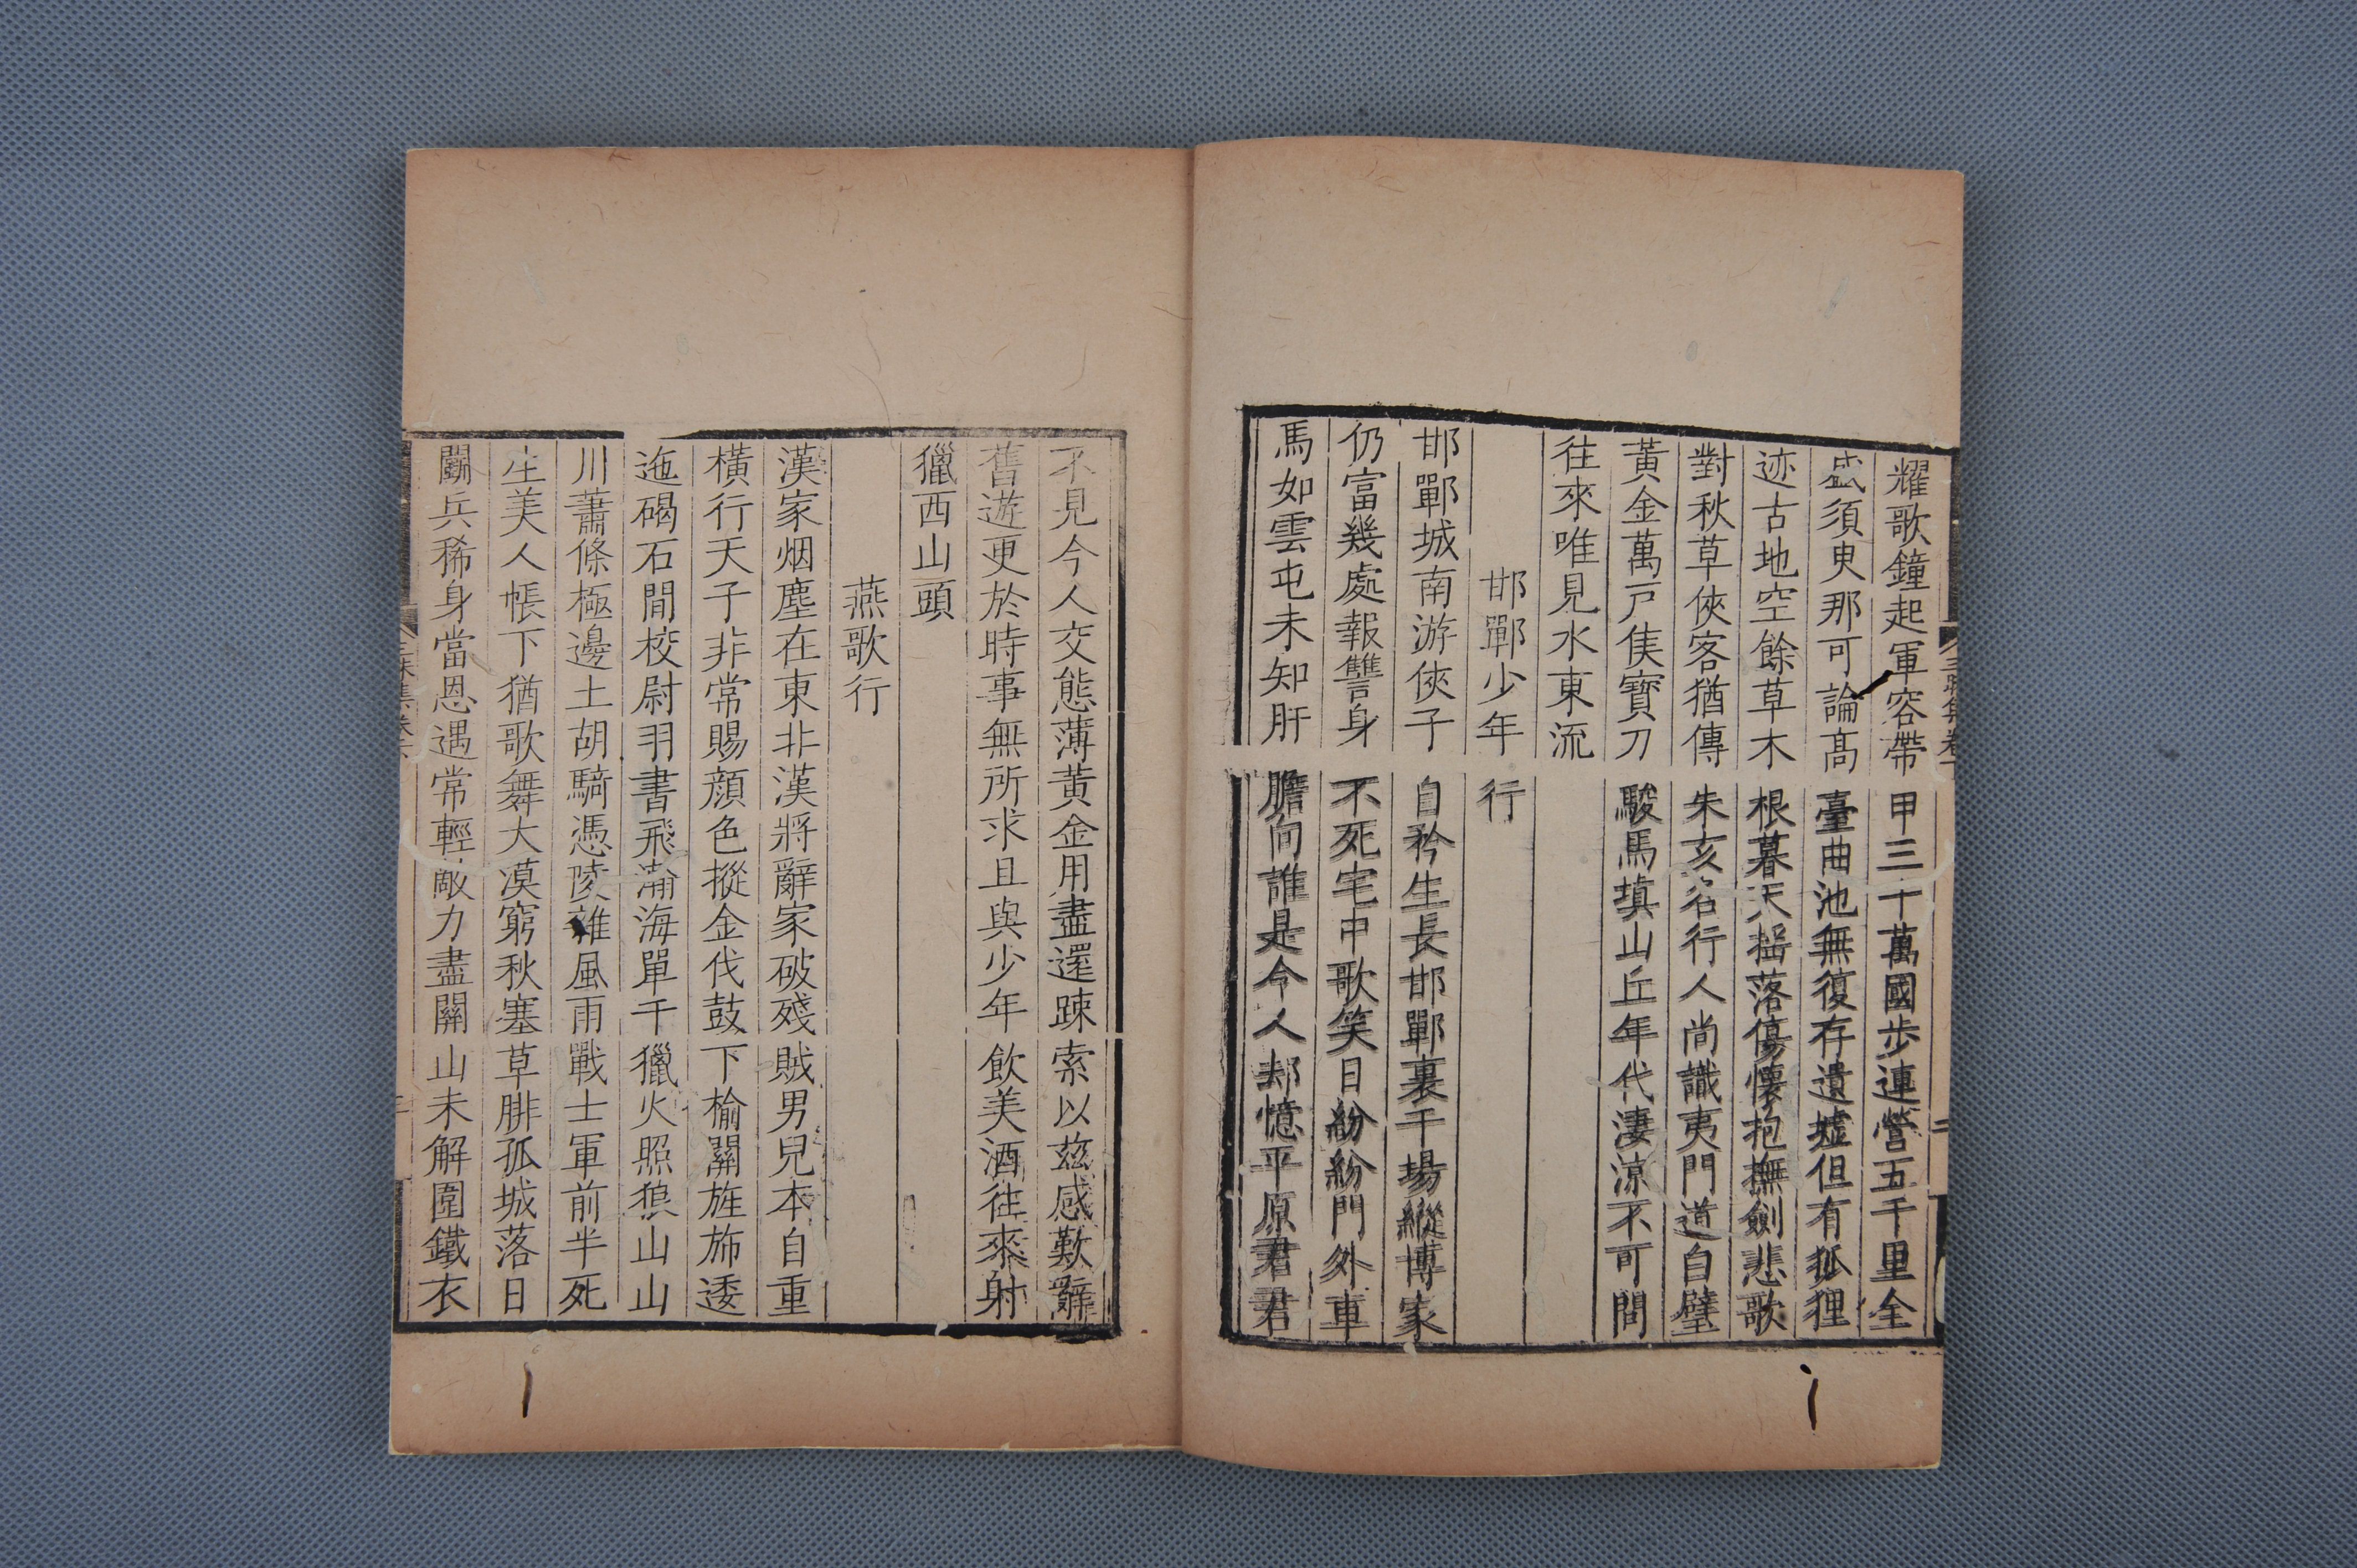 耀歌鐘起軍容帶甲三十萬國步連營五千里全
盛須臾那可論高臺曲池無復存遺墟但有狐狸
迹古地空餘草木根暮天搖落傷懷抱撫劍悲歌
對秋草俠客猶傳朱亥名行人尚識夷門道白璧
黃金萬戸侯寶刀駿馬填山丘年代淒涼不可問
往來唯見水東流
邯鄲少年行
邯鄲城南游俠子自矜生長邯鄲裏千場縱博家
仍富幾處報讐身不死宅中歌笑日紛紛門外車
馬如雲屯未知肝膽向誰是今人却憶平原君君
不見今人交態薄黃金用盡還踈索以茲感歎辭
舊遊更於時事無所求且與少年飲美酒往來射
獵西山頭
燕歌行
漢家烟塵在東北漢將辭家破殘賊男兒本自重
橫行天子非常賜顏色摐金伐鼓下榆關旌旆逶
迤碣石間校尉羽書飛瀚海單于獵火照狼山山
川蕭條極邊土胡騎憑陵雜風雨戰士軍前半死
生美人帳下猶歌舞大漠窮秋塞草腓孤城落日
鬭兵稀身當恩遇常輕敵力盡關山未解圍鐵衣